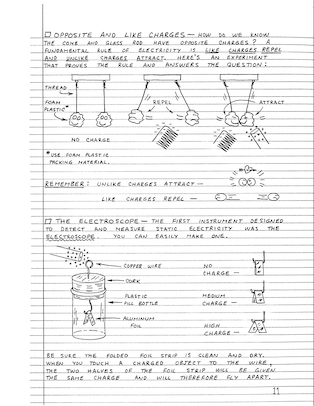 □ OPPOSITE AND LIKE CHARGES — HOW DO WE KNOW
THE COMB AND GLASS ROD HAVE OPPOSITE CHARGES? A
FUNDAMENTAL RULE OF ELECTRICITY IS LIKE CHARGES REPEL
AND UNLIKE CHARGES ATTRACT. HERE'S AN EXPERIMENT
THAT PROVES THE RULE AND ANSWERS THE QUESTION:
THREAD
FOAM
PLASTIC*
REPEL
ATTRACT
NO CHARGE
*USE FOAM PLASTIC
PACKING MATERIAL.
REMEMBER: UNLIKE CHARGES ATTRACT —
LIKE CHARGES REPEL —
□ THE ELECTROSCOPE — THE FIRST INSTRUMENT DESIGNED
TO DETECT AND MEASURE STATIC ELECTRICITY WAS THE
ELECTROSCOPE. YOU CAN EASILY MAKE ONE.
COPPER WIRE
CORK
PLASTIC
PILL BOTTLE
ALUMINUM
FOIL
NO
CHARGE —
MEDIUM
CHARGE —
HIGH
CHARGE —
BE SURE THE FOLDED FOIL STRIP IS CLEAN AND DRY.
WHEN YOU TOUCH A CHARGED OBJECT TO THE WIRE,
THE TWO HALVES OF THE FOIL STRIP WILL BE GIVEN
THE SAME CHARGE AND WILL THEREFORE FLY APART.
11